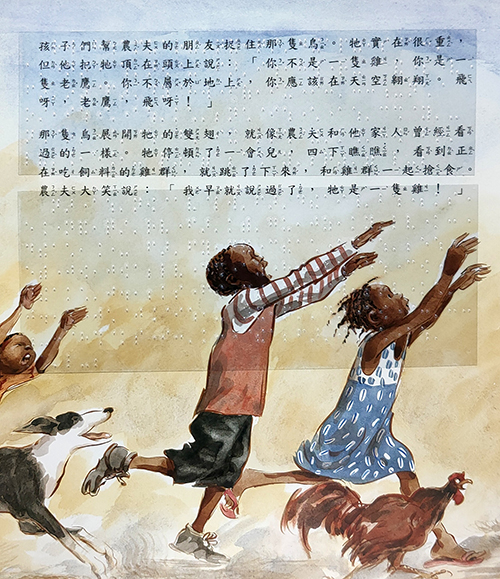 孩子們幫農夫的朋友捉住那隻鳥。牠實在很重，
但他把牠頂在頭上說：「你不是一隻雞，你是一
隻老鷹。你不屬於地上。你應該在天空翱翔。飛
呀，老鷹，飛呀！」
那隻鳥展開牠的雙翅，就像農夫和他家人曾經看
過的一樣。牠停頓了一會兒，四下瞧瞧，看到正
在吃飼料的雞群，就跳了下來，和雞群一起搶食。
農夫大笑說：「我早就說過了，牠是一隻雞！」